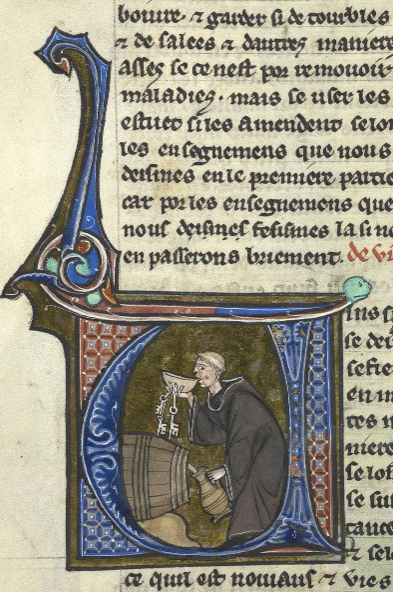 boiure. ⁊ garder si de tourbles
⁊ de salees ⁊ dautres maniere
asses se ce nest por remouoir
maladies. mais se user les
estuet si les amendent selon
les ensegnemens que nous
deisines en le premiere partie
car por les enseguemens que
nous deisines fesismes la
en passerons briement. de vi
ins
se dei
sefie
en
tes
niere
se lof
se sui
tance
⁊ sel
ce quil est nouiaus ⁊ vies